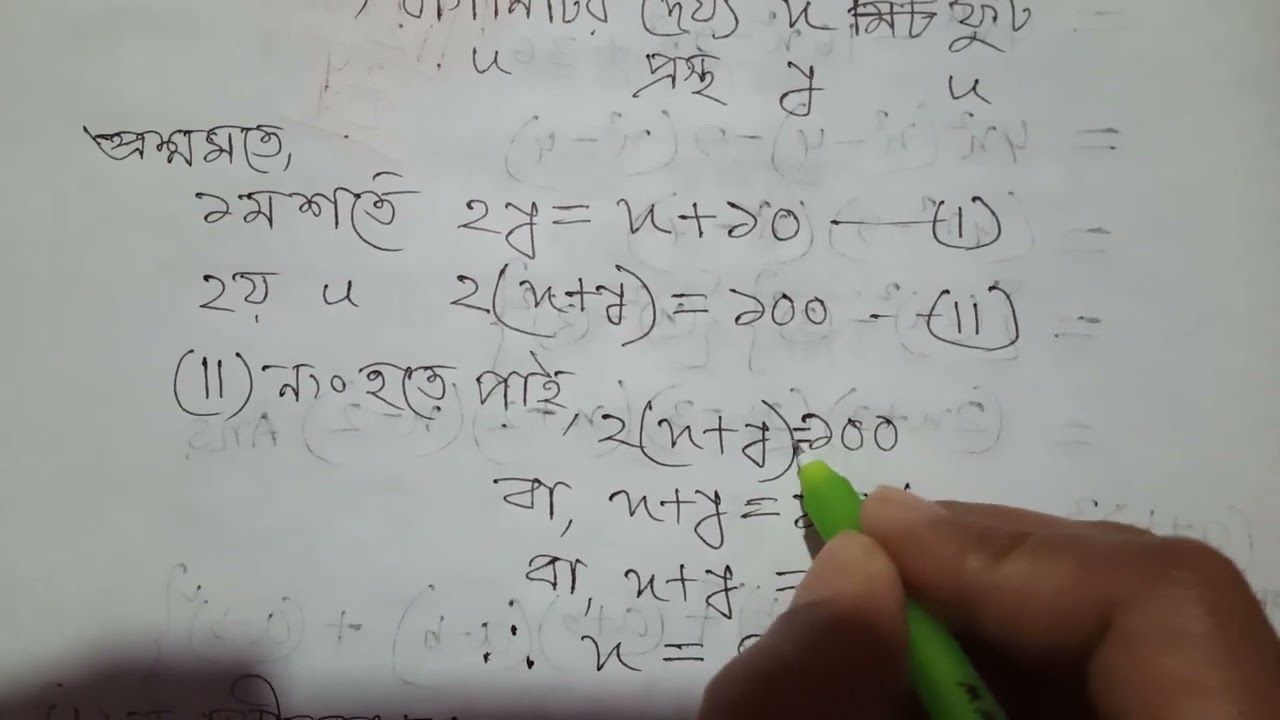 দৈর্ঘ্য x মিটি ফুট
" প্রস্থ y "
প্রশ্নমতে,
১ম শর্তে ২y = x + ১০ — (I)
২য় " ২(x+y) = ১০০ - - (II)
(II) নং হতে পাই, ২(x+y) = ১০০
বা, x+y =
বা, x+y =
∴ x =